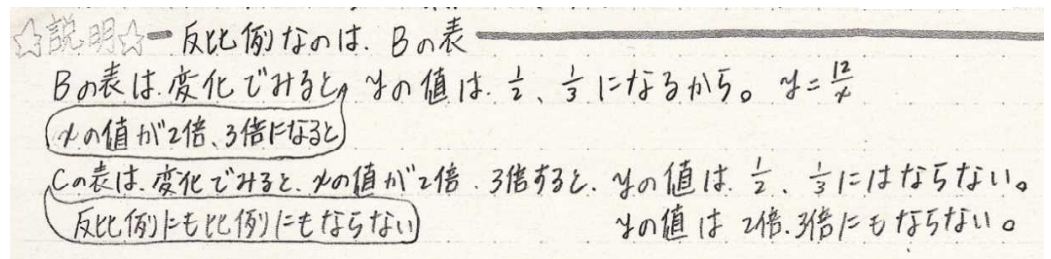 ☆説明☆ー反比例なのは、Bの表
Bの表は、変化でみると、yの値は、1/2、1/3になるから。 y=12/x
xの値が2倍、3倍になると
Cの表は、変化でみると、xの値が2倍、3倍すると、yの値は、1/2、1/3にはならない。
反比例にも比例にもならない yの値は 2倍、3倍にもならない。